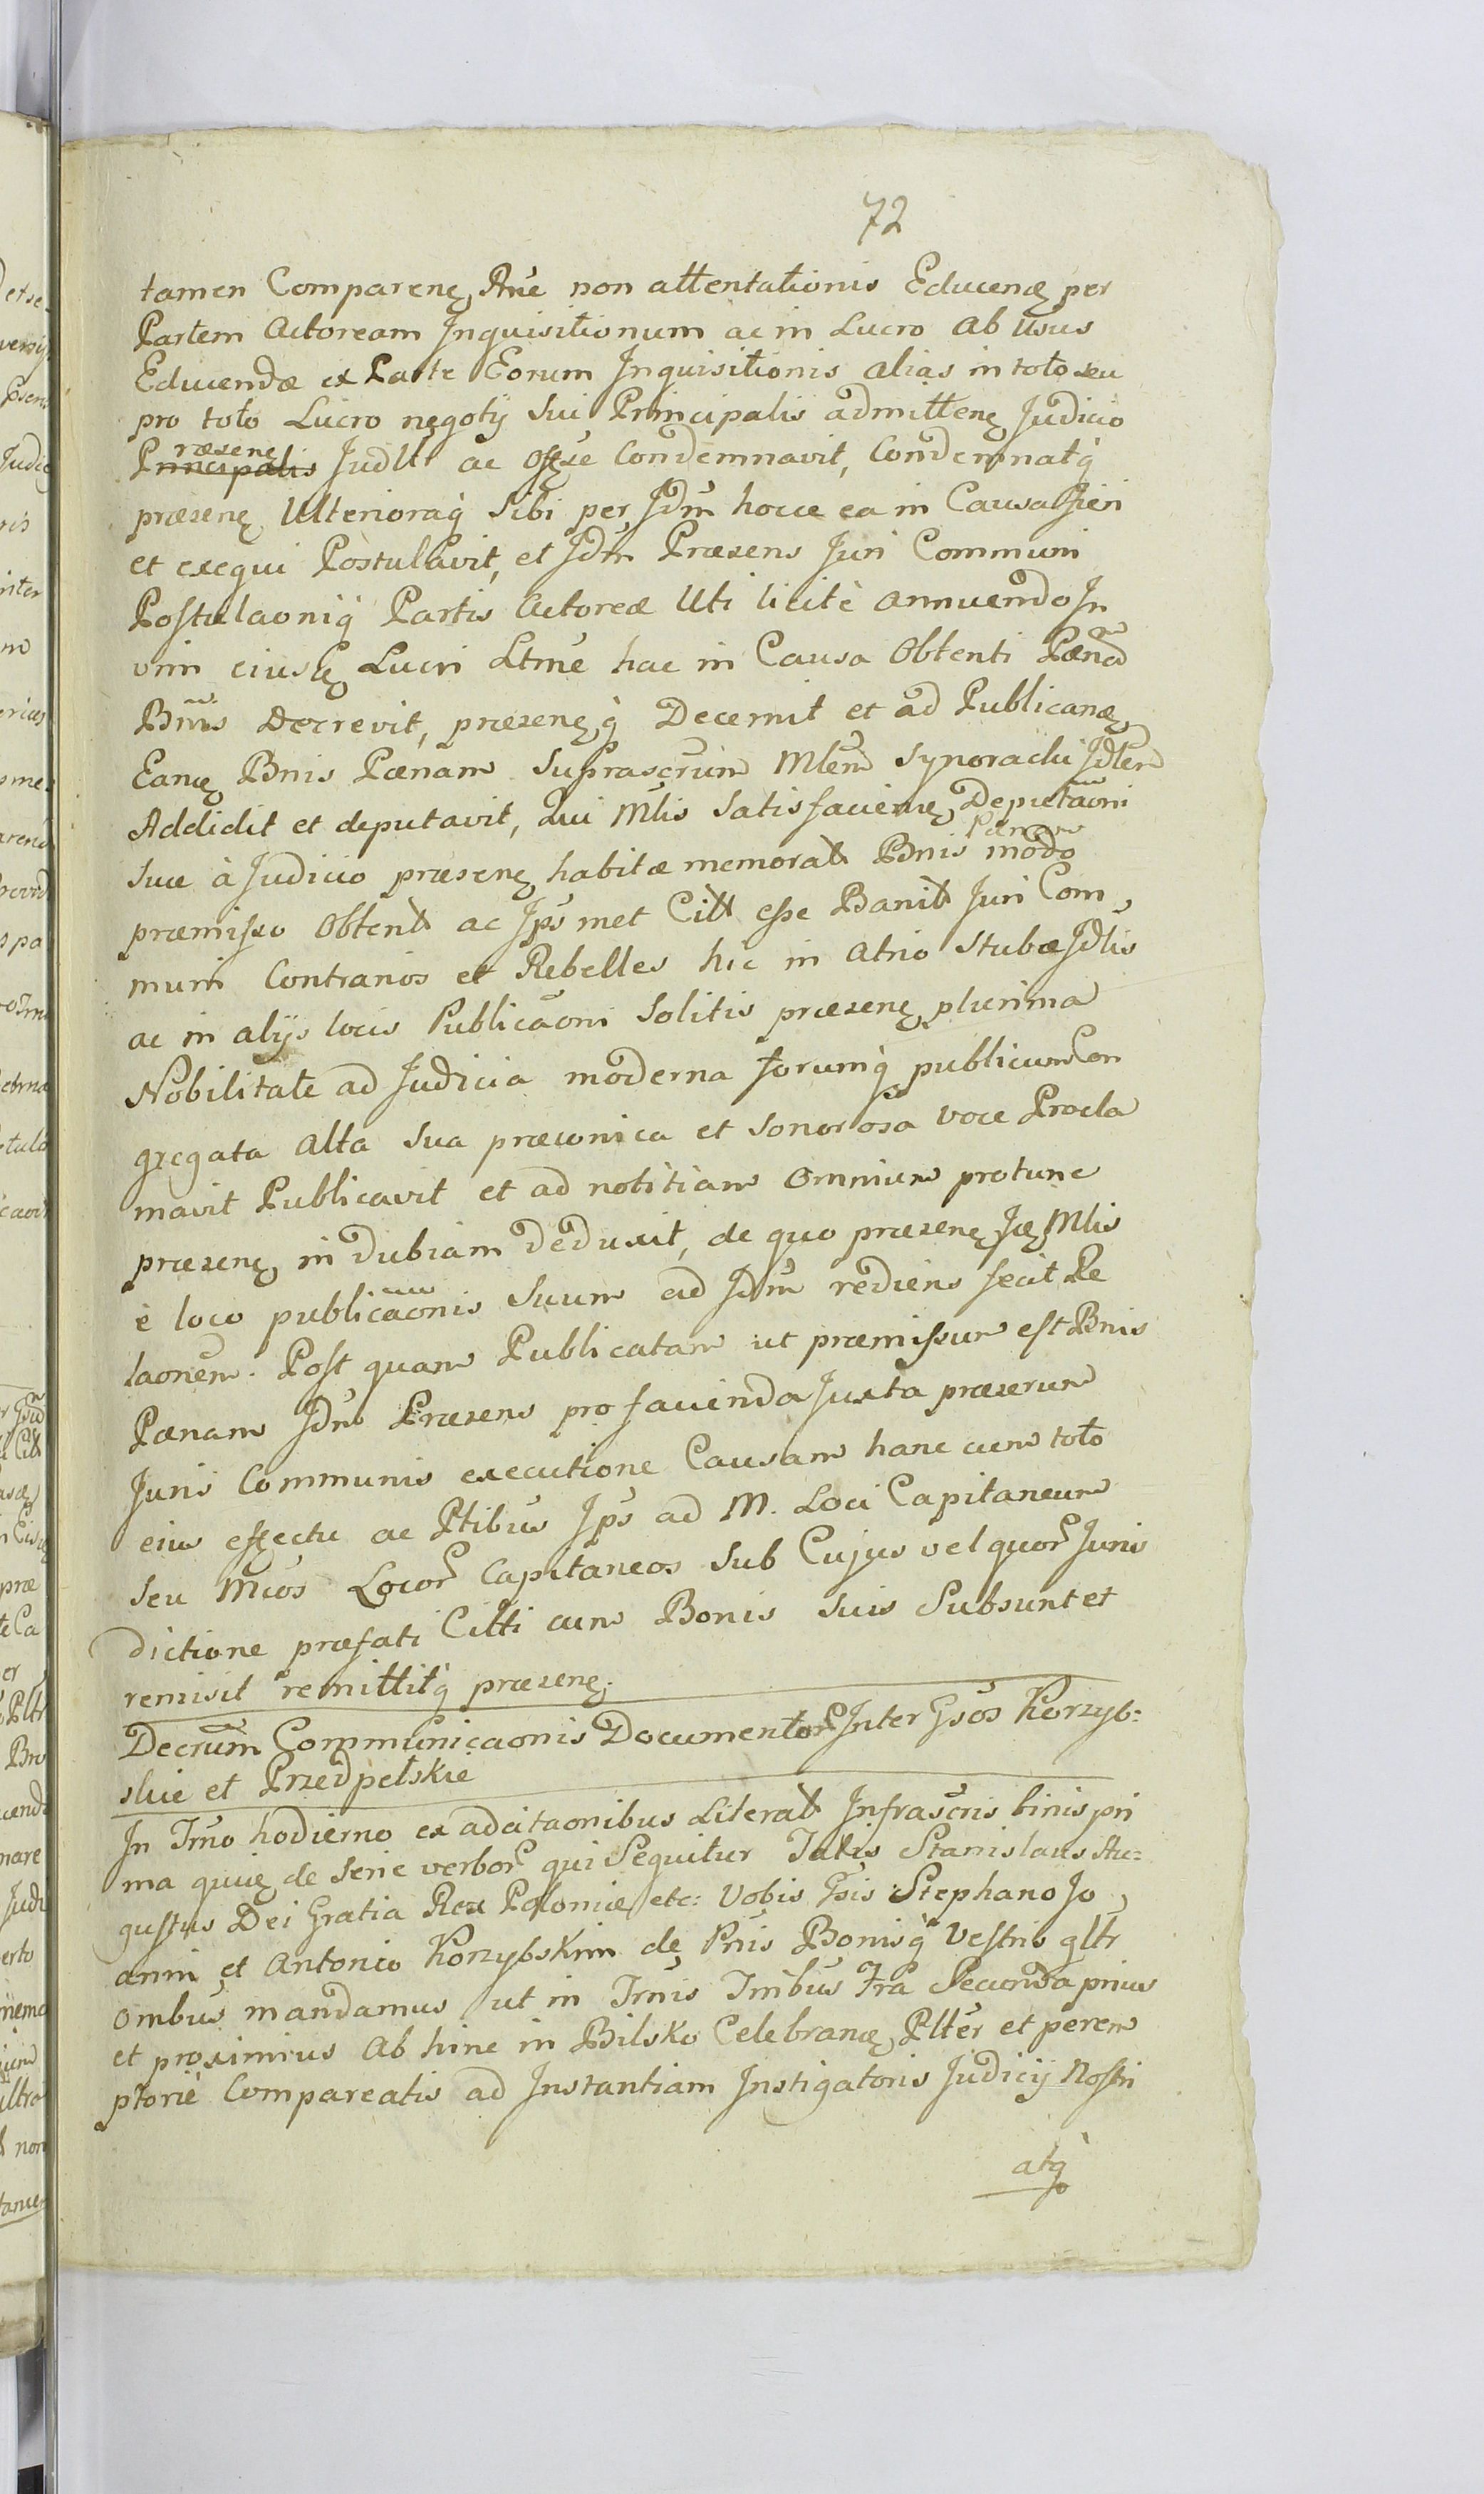 72
tamen Comparenꝫ Rne non attentationis Educenꝫ per
Partem Actoream Inquisitionum ac in Lucro ab Usus
Educendæ ex Parte Eorum Inquisitionis alias in toto seu
pro toto Lucro negotij sui Principalis admittenꝫ Judicio
Principalis ræsenꝫ Judltr ac Offse Condemnavit, Condemnatq̀
præsenꝫ Ulterioraq̀ Sibi per Jdm hocce ea in Causa fieri
et exequi Postulavit, et Jdm Præsens Juri Communi
Postulaoniq̀ Partis Actoreæ Uti licitè annuendo In
vim ejusꝫ Lucri Ltme hac in Causa Obtenti Pænã
Bnnis Decrevit, præsenꝫq̀ Decernit et ad Publicanꝫ
Eanꝫ Bnis Pœnam Suprascrum Mlem Synoradzki Jdlem
Addidit et deputavit, Qui Mlis Satisfacienꝫ Deputaoni
Suæ à Judicio præsenꝫ habitæ memorat Bnis Pænam modo
præmisso Obtent ac Jps met Citt esse Banit Juri Com,
muni Contrarios et Rebelles hic in Atrio Stubæ Jdlis
ac in alijs locis Publicaoni Solitis præsenꝫ plurima
Nobilitate ad Judicia moderna forumq̀ publicum Con
gregata Alta Sua præconica et Sonorosa voce Procla
mavit Publicavit et ad notitiam Omnium protunc
præsenꝫ indubiam deduxit, de quo præsenꝫ Jꝫ Mlis
è loco publicaonis Suum ad Jdm rediens fecit Re
laonem. Post quam Publicatam ut præmissum est Bnis
Pænam Jdm Præsens pro facienda Juxta præscrum
Juris Communis executione Causam hanc cum toto
eius effectu ac Ptibus Jps ad M. Loci Capitaneum
Seu Mcos Locor Capitaneos Sub Cujus vel quor Juris
dictione præfati Citti cum Bonis Suis Subsunt et
remisit remittitq̀ præsenꝫ.
Decrum Communicaonis Documentor Inter Gsos Korzyb:
skie et Przedpełskie
In Tmo hodierno ex adcitaonibus Literat Infrascris binis pri
ma quiꝫ de Serie verbor qui Sequitur Talis Stanislaus Au:
gustus Dei Gratia Rex Poloniæ etc: Vobis Gsis Stephano Jo,
anni et Antonio Korzybskim de Pnis Bonisq̀ Vestris gltr
Ombus mandamus ut in Trnis Tmibus Fra Secunda prius
et proximius Ab hinc in Bilsko Celebranꝫ Plter et perem
ptoriè Compareatis ad Instantiam Instigatoris Judicij Nostri
atq̀